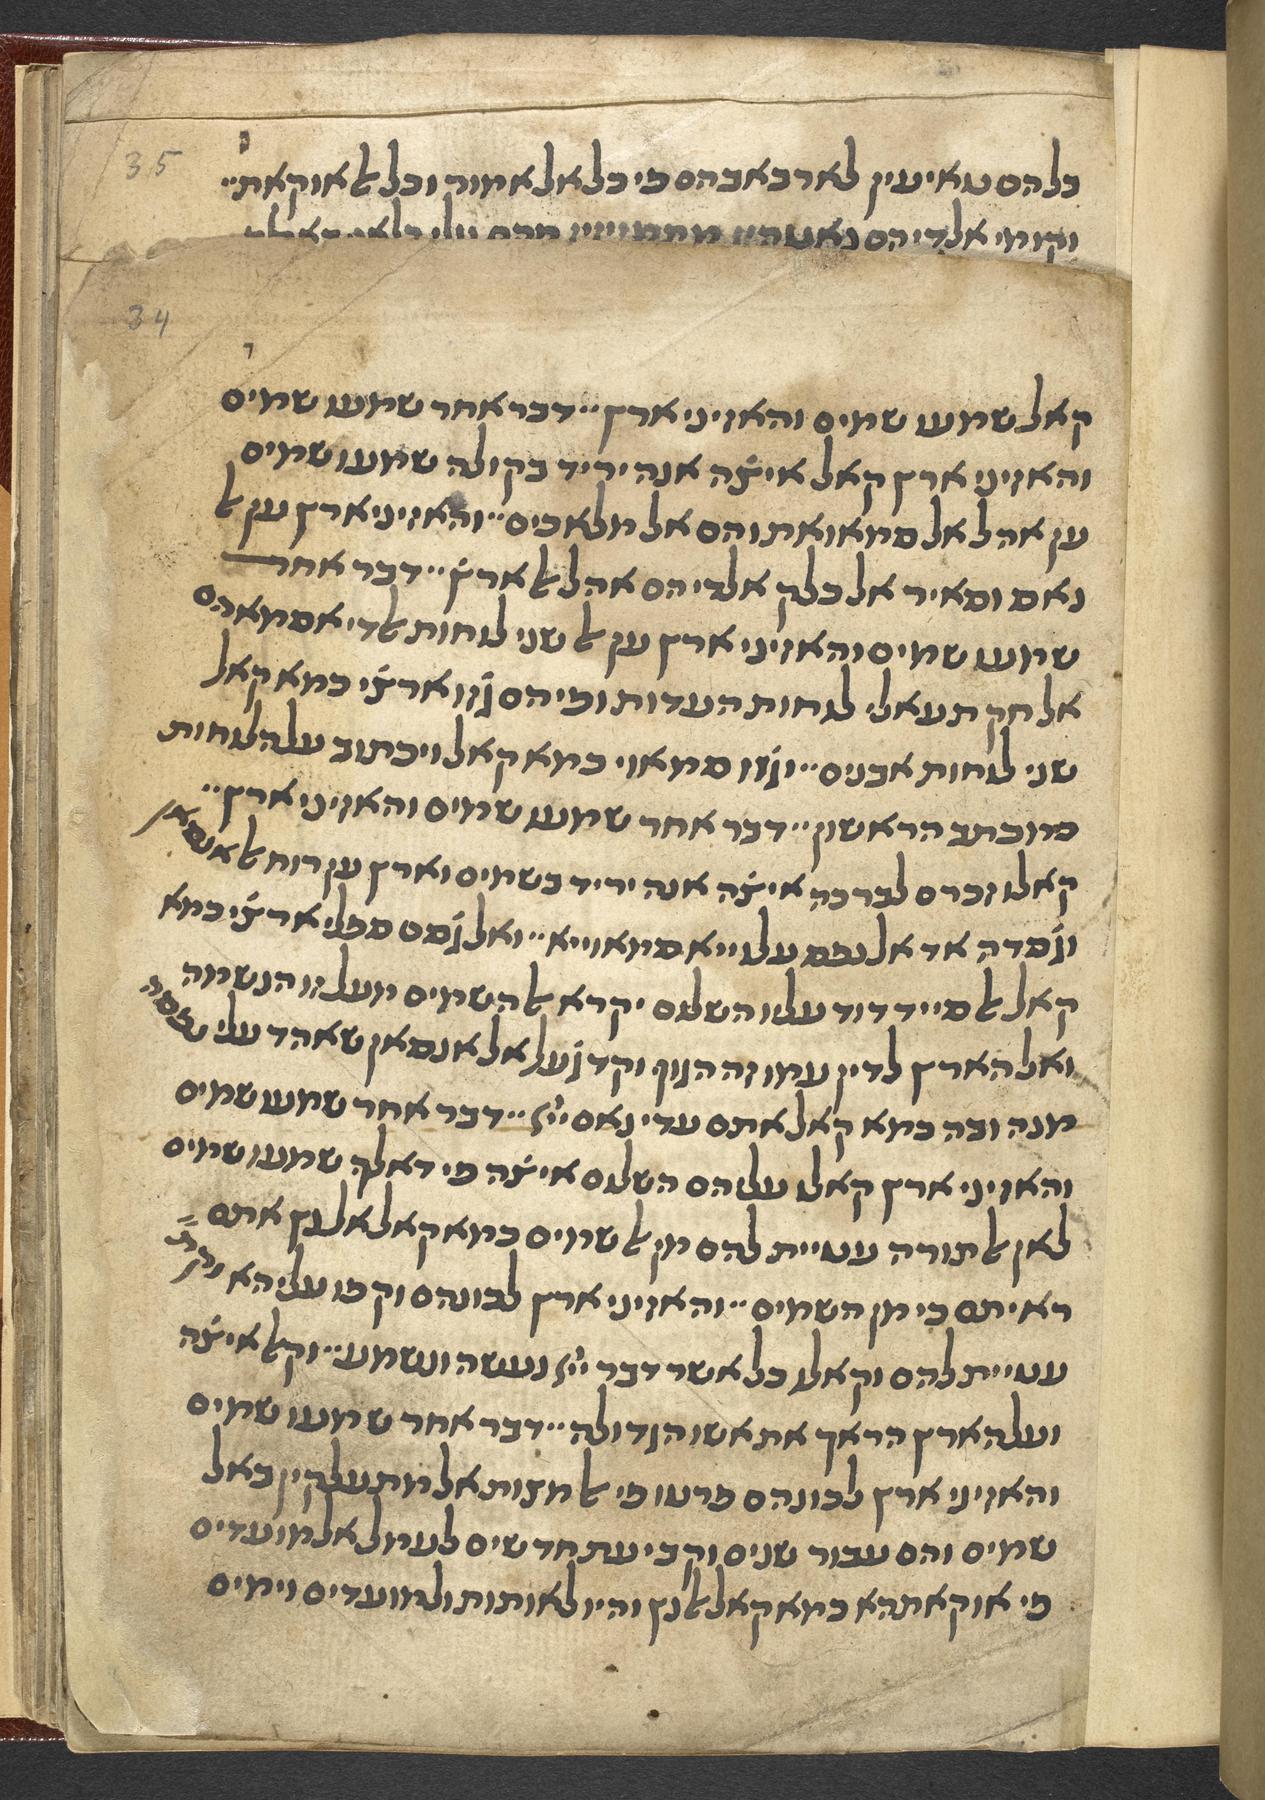 35
כלהם טאיעין לארבאבהם פי כל אלאמור וכל לאוקאת
וקומי אלדיהם
34
קאל שמעו שמים והאזיני ארץ·· דבר אחר שמעו שמים
והאזיני ארץ קאל איצ̇ה אנה יריד בקולה שמעו שמים
ען אהל אל סמאואת והם אל מלאכים·· והאזיני ארץ ען ל
נאס וסאיר אל כלק אלדי הם אהל לארץ̇·· דבר אחר
שמעו שמים והאזיני ארץ ען ל שני לוחות לדי אסמאהם
אל חק תעאלי לוחות העדות ופיהם ג̇זו ארצ̇י כמא קאל
שני לוחות אבנים·· וג̇זו סמאוי כמא קאל ויכתוב על הלוחות
כמכתב הראשון·· דבר אחר שמעו שמים והאזיני ארץ··
קאלו זכרם לברכה איצ̇ה אנה יריד בשמים וארץ ען רוח לאנסאן
וג̇סדה אד אלנפס עלוייא סמאוייא·· ואל ג̇סם ספלי ארצ̇י כמא
קאל לסייד דוד עליו השלום יקרא ל השמים מעל זו הנשמה
ואל הארץ לדין עמו זה הגוף וקד ג̇על אל אנסאן שאהד עלי נפסה
מנה ובה כמא קאל אתם עדי נאם ייי·· דבר אחר שמעו שמים
והאזיני ארץ קאלו עליהם השלום איצ̇ה פי דאלך שמעו שמים
לאן ל תורה עטיית להם מן ל שמים כמא קאל אלנץ אתם
ראיתם כי מן השמים·· והאזיני ארץ לכונהם וקפו עליהא וקת
עטיית להם וקאלו כל אשר דבר ייי נעשה ונשמע·· וקל איצ̇ה
ועל הארץ הראך את אשו הגדולה·· דבר אחר שמעו שמים
והאזיני ארץ לכונהם פרטו פי ל מצות אל מתעלקין באל
שמים והם עבור שנים וקביעת חדשים לעמל אל מועדים
פי אוקאתהא כמא קאל לנץ והיו לאותות ולמועדים וימים